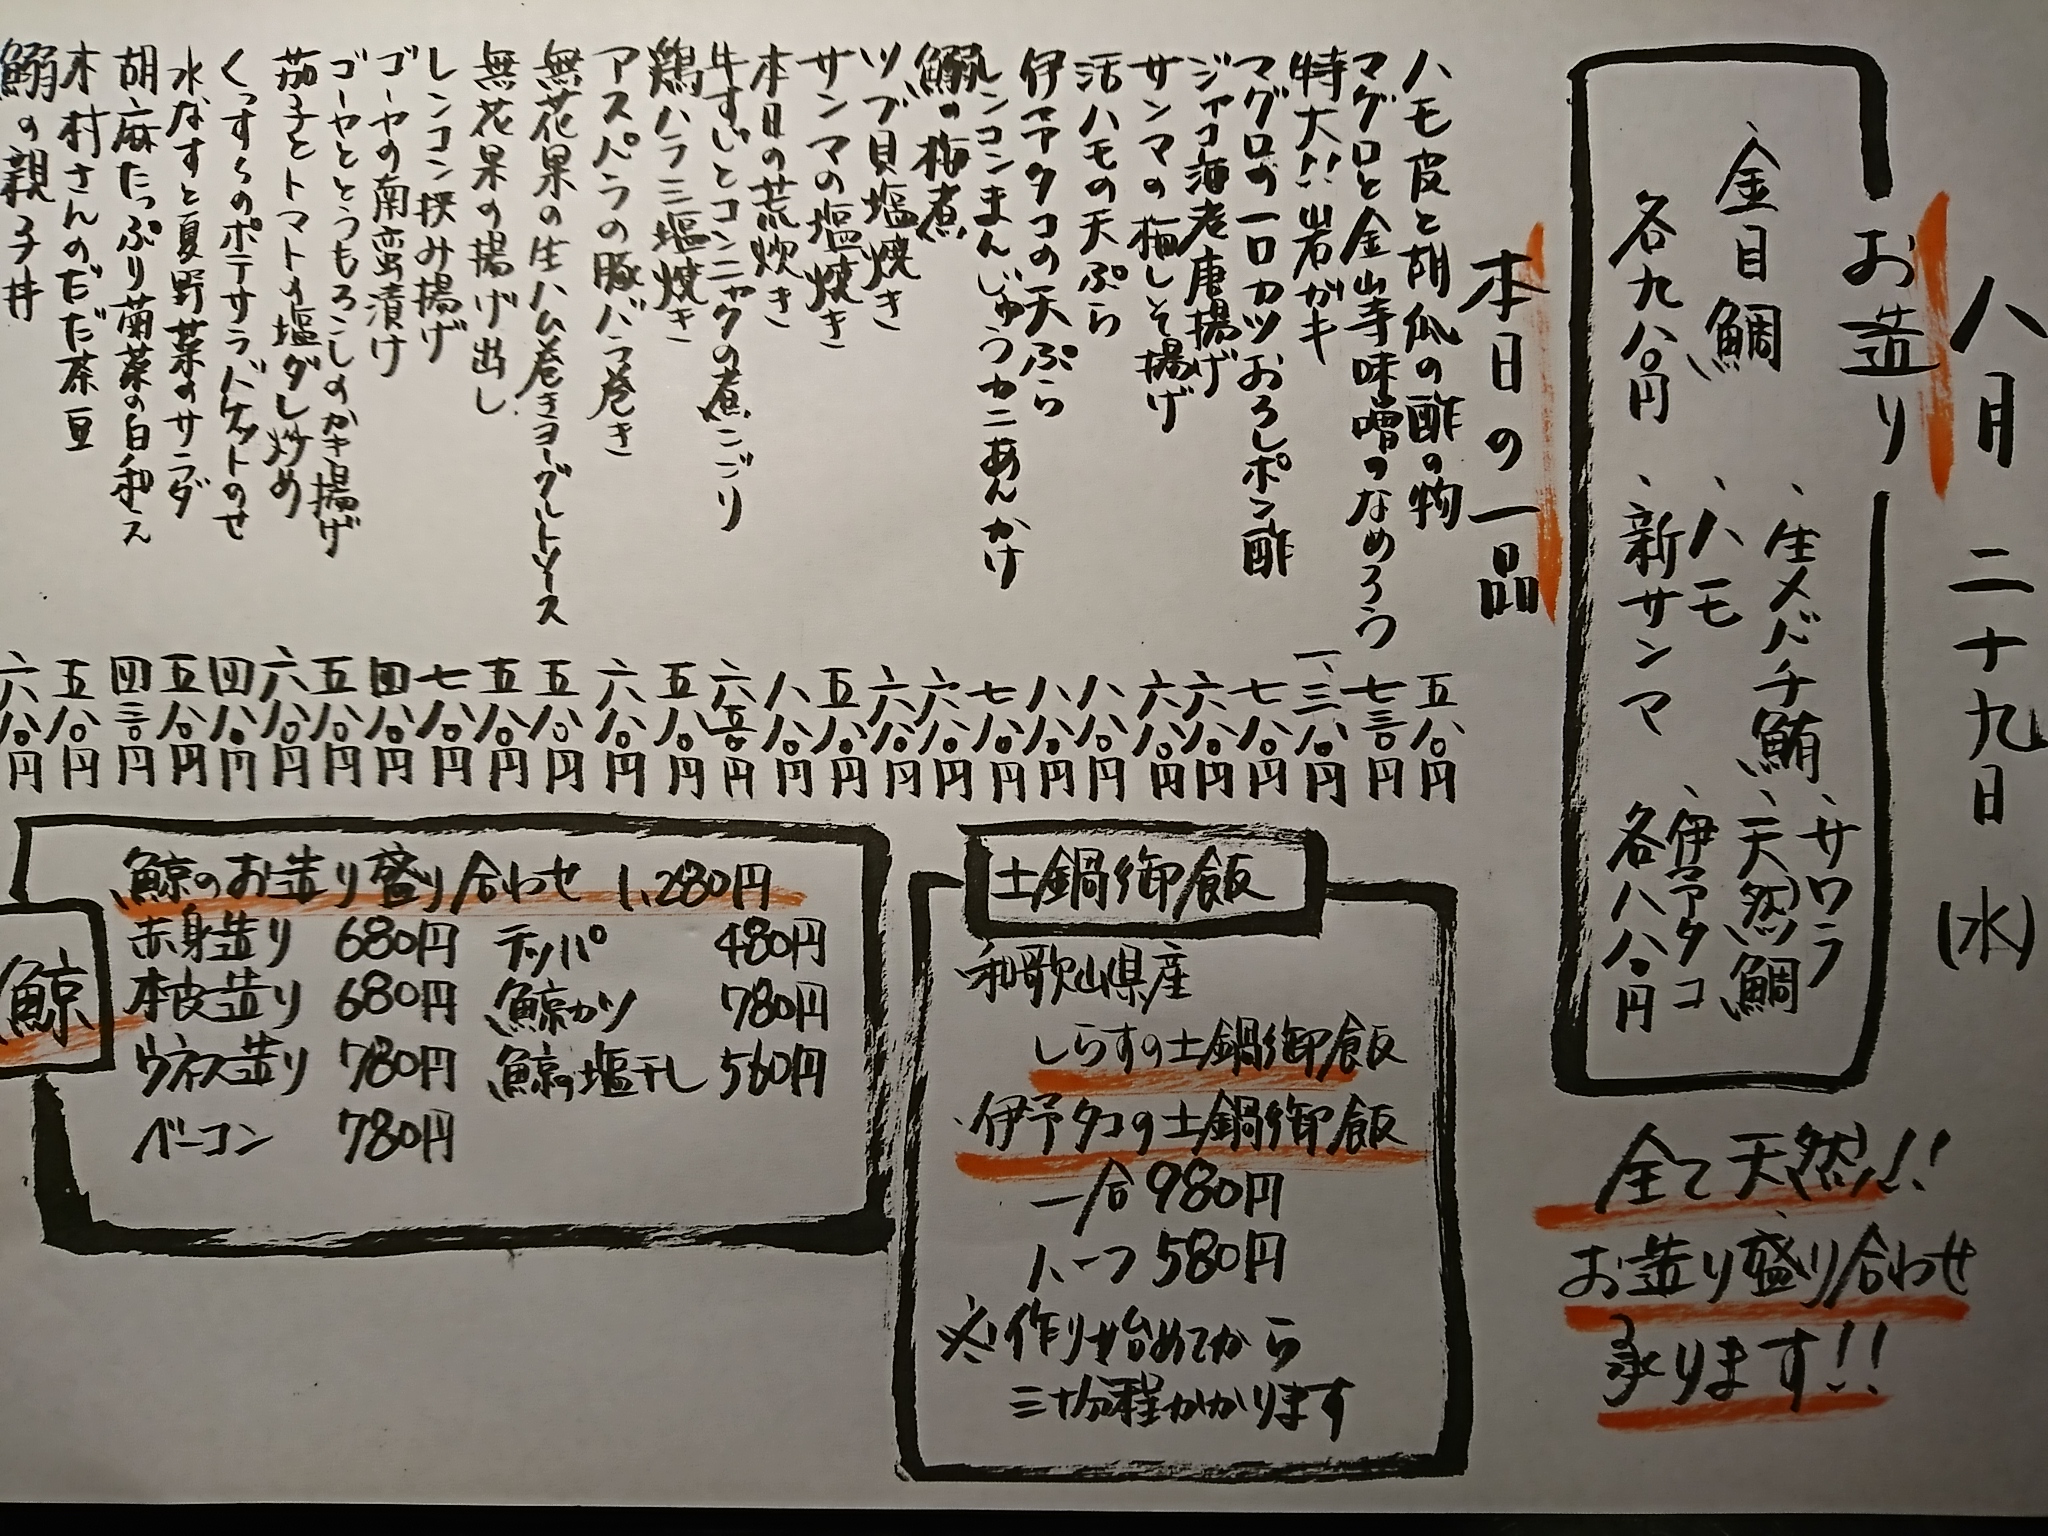 八月二十九日(水)
お造り
、生メバチ鮪、サワラ
、金目鯛、ハモ、天然鯛
各九八〇円、新サンマ、伊予タコ
各八八〇円
全て天然!!
お造り盛り合わせ
承ります!!
本日の一品
ハモ皮と胡瓜の酢の物 五八〇円
マグロと金山寺味噌のなめろう 七三〇円
特大!!岩ガキ 一、三八〇円
マグロの一口カツおろしポン酢 七八〇円
ジャコ海老唐揚げ 六八〇円
サンマの梅しそ揚げ 六八〇円
活ハモの天ぷら 八八〇円
伊予タコの天ぷら 八八〇円
レンコンまんじゅうカニあんかけ 七八〇円
鰯の梅煮 六八〇円
ツブ貝塩焼き 六八〇円
サンマの塩焼き 五八〇円
本日の荒炊き 八八〇円
牛すじとコンニャクの煮こごり 六五〇円
鶏ハラミ塩焼き 五八〇円
アスパラの豚バラ巻き 六八〇円
無花果の生ハム巻きヨーグルトソース 五八〇円
無花果の揚げ出し 五八〇円
レンコン挟み揚げ 七八〇円
ゴーヤの南蛮漬け 四八〇円
ゴーヤととうもろこしのかき揚げ 五八〇円
茄子とトマトの塩ダレ炒め 六八〇円
くっすんのポテサラバケットのせ 四八〇円
水なすと夏野菜のサラダ 五八〇円
胡麻たっぷり菊菜の白和え 四三〇円
木村さんのだだ茶豆 五八〇円
鰯の親子丼 六八〇円
土鍋御飯
和歌山県産
しらすの土鍋御飯
、伊予タコの土鍋御飯
一合 980円
ハーフ 580円
※作り始めてから
三十分程かかります
鯨
鯨のお造り盛り合わせ 1,280円
赤身造り 680円 テッパ 480円
本皮造り 680円 鯨カツ 780円
ウネス造り 780円 鯨の塩干し 560円
ベーコン 780円